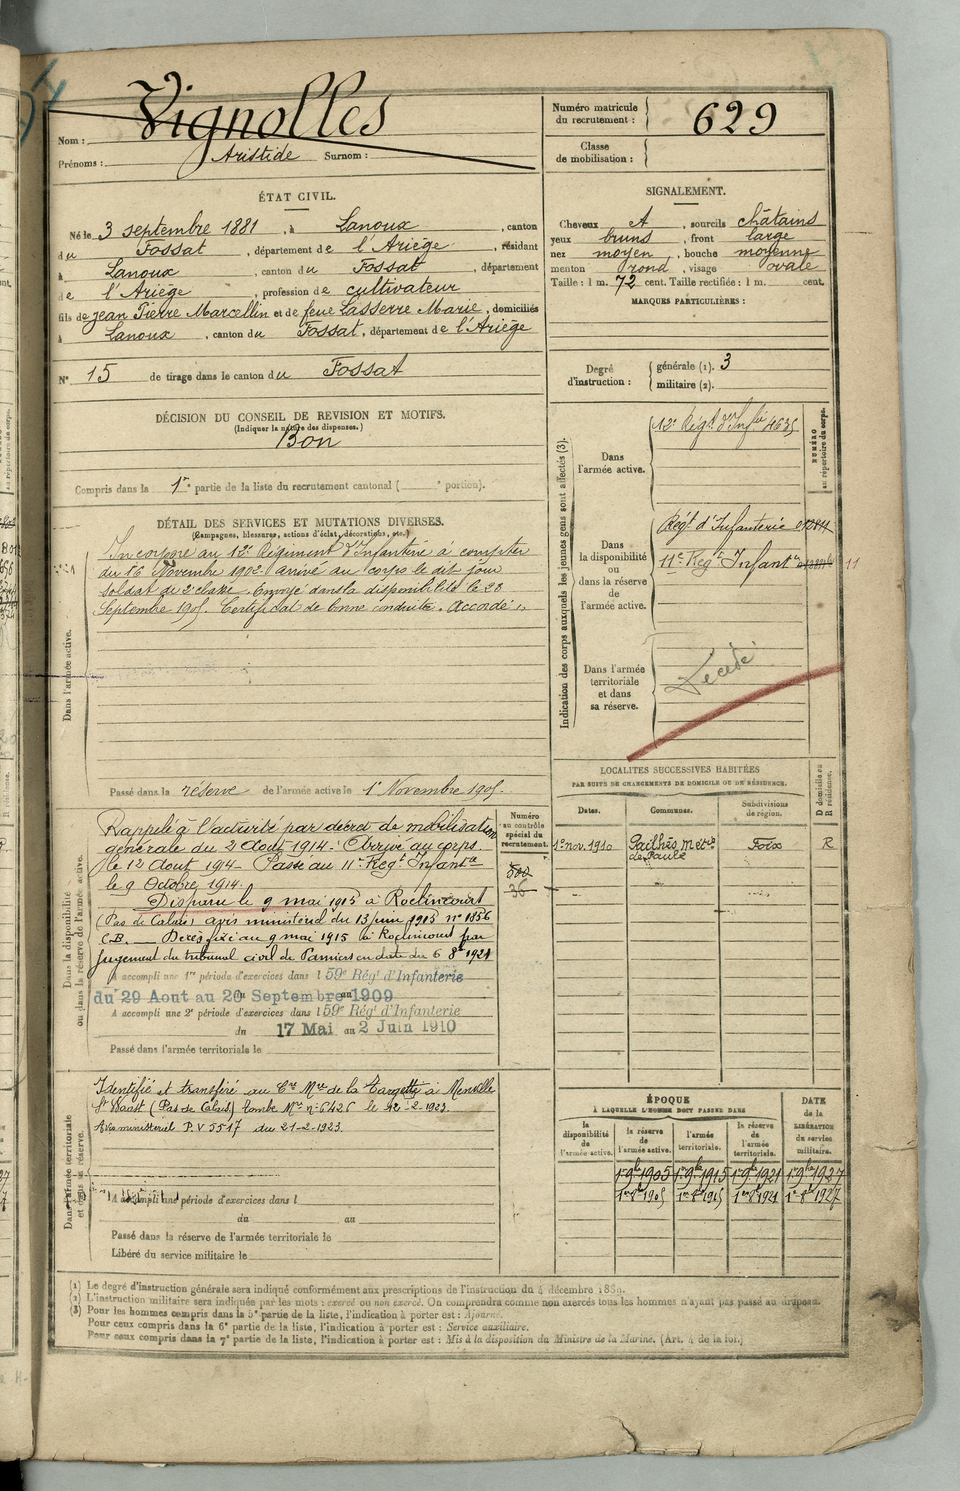 Vignolles
Nom :
Prénoms : Aristide Surnom :
Numéro matricule du recrutement : 629
Classe de mobilisation :
ÉTAT CIVIL.
Né le 3 septembre 1881, à Lanoux, canton
du Fossat, département de l'Ariège, résidant
à Lanoux, canton du Fossat, département
de l'Ariège, profession de cultivateur
fils de jean Pierre Marcellin et de feue Lasserre Marie, domiciliés
à Lanoux, canton du Fossat, département de l'Ariège
N° 15 de tirage dans le canton du Fossat
SIGNALEMENT.
Cheveux A, sourcils châtains
yeux bruns, front large
nez moyen, bouche moyenne
menton rond, visage ovale
Taille : 1 m. 72 cent. Taille rectifiée : 1 m. cent.
MARQUES PARTICULIÈRES :
Degré d'instruction : générale (1). 3
militaire (2).
DÉCISION DU CONSEIL DE REVISION ET MOTIFS.
(Indiquer la nature des dispenses.)
Bon
Compris dans la 1re partie de la liste du recrutement cantonal ( e portion).
DÉTAIL DES SERVICES ET MUTATIONS DIVERSES.
(Campagnes, blessures, actions d'éclat, décorations, etc.)
Dans l'armée active.
Incorporé au 12e Régiment d'Infanterie à compter
du 16 Novembre 1902. arrivé au corps le dit jour
soldat de 2e classe. Envoyé dans la disponibilité le
Septembre 1905. Certificat de bonne conduite. Accordé.
Passé dans la réserve de l'armée active le 1er Novembre 1905.
Indication des corps auxquels les jeunes gens sont affectés (3).
NUMÉRO au répertoire du corps.
Dans l'armée active.
12e Régt d'Infie 4635
Dans la disponibilité ou dans la réserve de l'armée active.
Régt d'Infanterie
11e Regt Infante
11
Dans l'armée territoriale et dans sa réserve.
Décédé
Dans la disponibilité ou dans la réserve de l'armée active.
Rappelé à l'activité par décret de mobilisation
générale du 2 Aout 1914 - Arrivé au corps
le 12 Aout 1914 - Passé au 11e Regt Infante
le 9 Octobre 1914.
Disparu le 9 mai 1915 à Roclincourt
(Pas de Calais) avis ministériel du 13 juin 1915 n° 1856
C.B. Décès fixé au 9 mai 1915 à Roclincourt par
jugement du tribunal civil de Pamiers en date du 6 8bre 1921
A accompli une 1re période d'exercices dans l 59e Régt d'Infanterie
du 29 Aout au 20 Septembre 1909
A accompli une 2e période d'exercices dans l 59e Régt d'Infanterie
du 17 Mai au 2 Juin 1910
Passé dans l'armée territoriale le
Numéro au contrôle spécial du recrutement.
36
LOCALITÉS SUCCESSIVES HABITÉES
PAR SUITE DE CHANGEMENTS DE DOMICILE OU DE RÉSIDENCE.
Dates. Communes. Subdivisions de région. D domicile ou R résidence.
1er nov. 1910 Pailhès, Foix R
Dans l'armée territoriale et dans sa réserve.
Identifié et transféré au Cre Mre de la Targette à Neuville
St Vaast (Pas de Calais) tombe Mre n° 6426 le 12-2-1923.
Avis ministeriel P.V 5517 du 21-2-1923.
A accompli une période d'exercices dans l
du au
Passé dans la réserve de l'armée territoriale le
Libéré du service militaire le
ÉPOQUE
À LAQUELLE L'HOMME DOIT PASSER DANS
DATE de la LIBÉRATION du service militaire.
la disponibilité de l'armée active. la réserve de l'armée active. l'armée territoriale. la réserve de l'armée territoriale.
1er 9bre 1905 1er 9bre 1915 1er 9bre 1921 1er 9bre 1927
1er 8bre 1905 1er 8bre 1915 1er 8bre 1921 1er 8bre 1927
(1) Le degré d'instruction générale sera indiqué conformément aux prescriptions de l'instruction du 4 décembre 1889.
(2) L'instruction militaire sera indiquée par les mots : exercé ou non exercé. On comprendra comme non exercés tous les hommes n'ayant pas passé au drapeau.
(3) Pour les hommes compris dans la 5e partie de la liste, l'indication à porter est : Ajourné.
Pour ceux compris dans la 6e partie de la liste, l'indication à porter est : Service auxiliaire.
Pour ceux compris dans la 7e partie de la liste, l'indication à porter est : Mis à la disposition du Ministre de la Marine. (Art. 4 de la loi.)